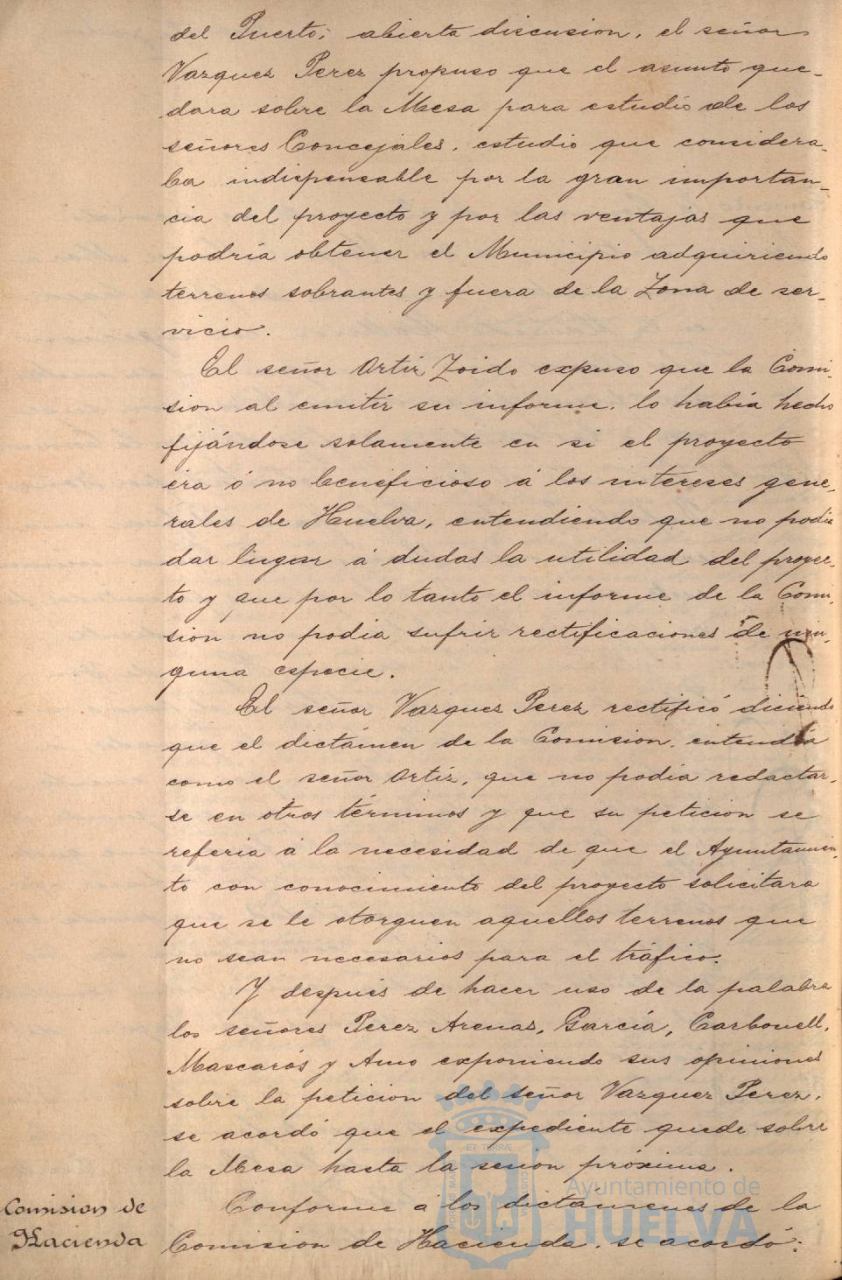 del Puerto; abierta discusion, el señor
Vazquez Perez propuso que el asunto que-
dara sobre la Mesa para estudio de los
señores Concejales, estudio que considera-
ba indispensable por la gran importan-
cia del proyecto y por las ventajas que
podría obtener el Municipio adquiriendo
terrenos sobrantes y fuera de la Zona de ser-
vicio.
El señor Ortiz Zoido expuso que la Comi-
sion al emitir su informe, lo había hecho
fijándose solamente en si el proyecto
era ó no beneficioso á los intereses gene-
rales de Huelva, entendiendo que no podia
dar lugar á dudas la utilidad del proyec-
to y que por lo tanto el informe de la Comi-
sion no podia sufrir rectificaciones de nin-
guna especie.
El señor Vazquez Perez rectificó diciendo
que el dictámen de la Comision, entendia
como el señor Ortiz, que no podia redactar-
se en otros términos y que su peticion se
referia á la necesidad de que el Ayuntamien-
to con conocimiento del proyecto solicitara
que se le otorguen aquellos terrenos que
no sean necesarios para el tráfico.
Y después de hacer uso de la palabra
los señores Perez Arenas, García, Carbonell,
Mascarós y Amo exponiendo sus opiniones
sobre la peticion del señor Vazquez Perez,
se acordó que el expediente quede sobre
la Mesa hasta la sesion próxima.
Comision de
Hacienda
Conforme á los dictámenes de la
Comision de Hacienda, se acordó:
Ayuntamiento de
HUELVA